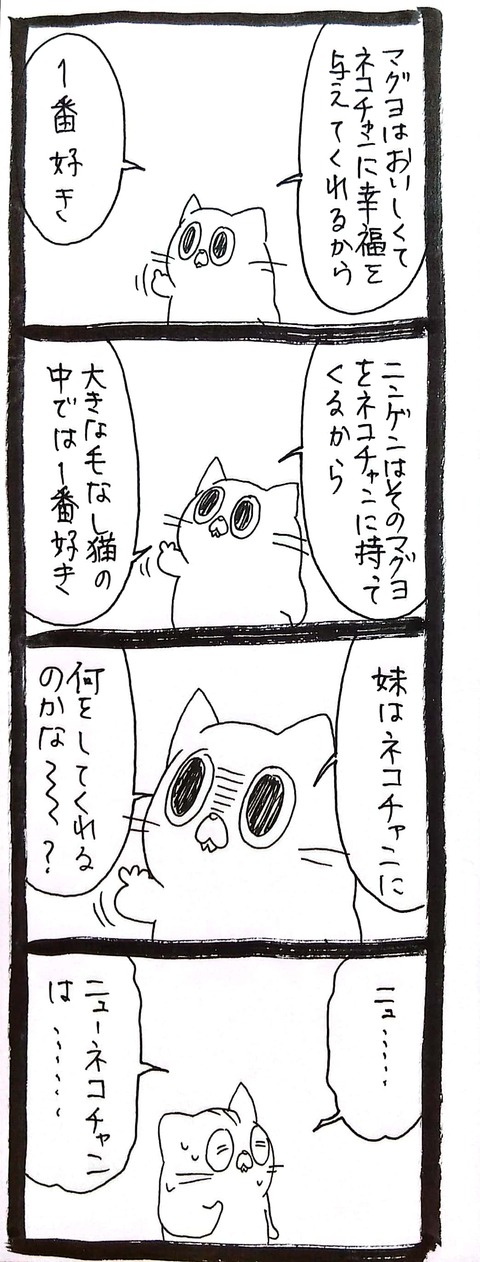 マグヨはおいしくて
ネコチャンに幸福を
与えてくれるから
1番好き
ニンゲンはそのマグヨ
をネコチャンに持って
くるから
大きな毛なし猫の
中では1番好き
妹はネコチャンに
何をしてくれる
のかな〜〜〜?
ニュ……
ニューネコチャン
は……